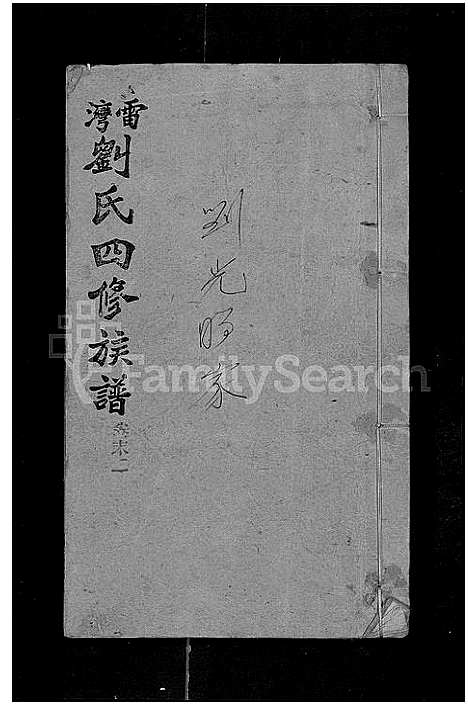 雷灣劉氏四修族譜
卷末二
刘光明家
FamilySearch